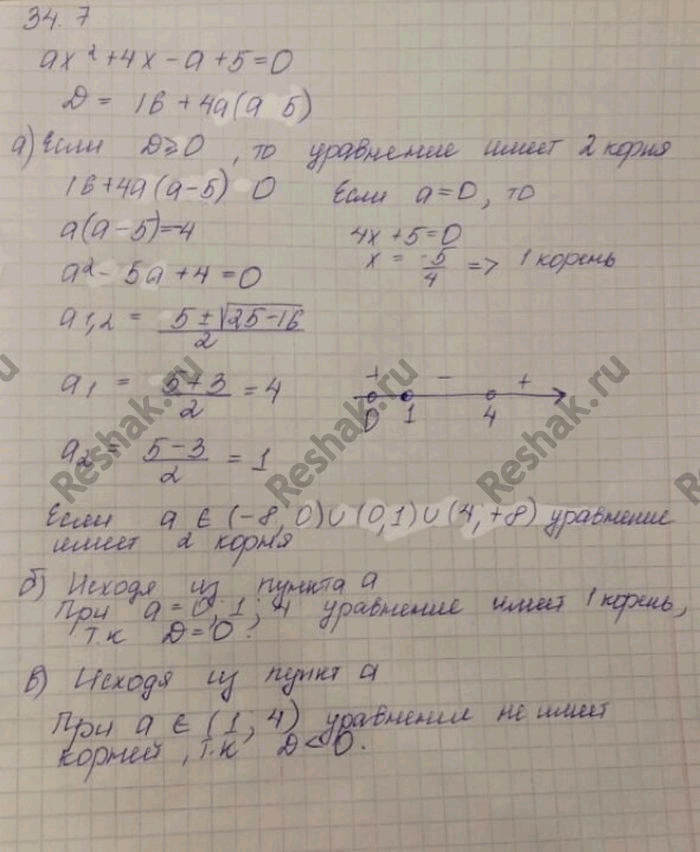 34.7
ax² + 4x - a + 5 = 0
D = 16 + 4a(a 5)
а) Если D ≥ 0, то уравнение имеет 2 корня
16 + 4a(a - 5) 0 Если a = 0, то
a(a - 5) = -4 4x + 5 = 0
a² - 5a + 4 = 0 x = -5/4 => 1 корень
a1,2 = (5 ± √(25 - 16))/2
a1 = (5 + 3)/2 = 4
+ - +
0 1 4
a2 = (5 - 3)/2 = 1
Если a ∈ (-8, 0) ∪ (0, 1) ∪ (4, +8) уравнение
имеет 2 корня
б) Исходя из пункта а
При a = 0; 1; 4 уравнение имеет 1 корень,
т.к D = 0.
в) Исходя из пункт а
При a ∈ (1; 4) уравнение не имеет
корней, т.к D < 0.
Reshak.ru
Reshak.ru
Reshak.ru